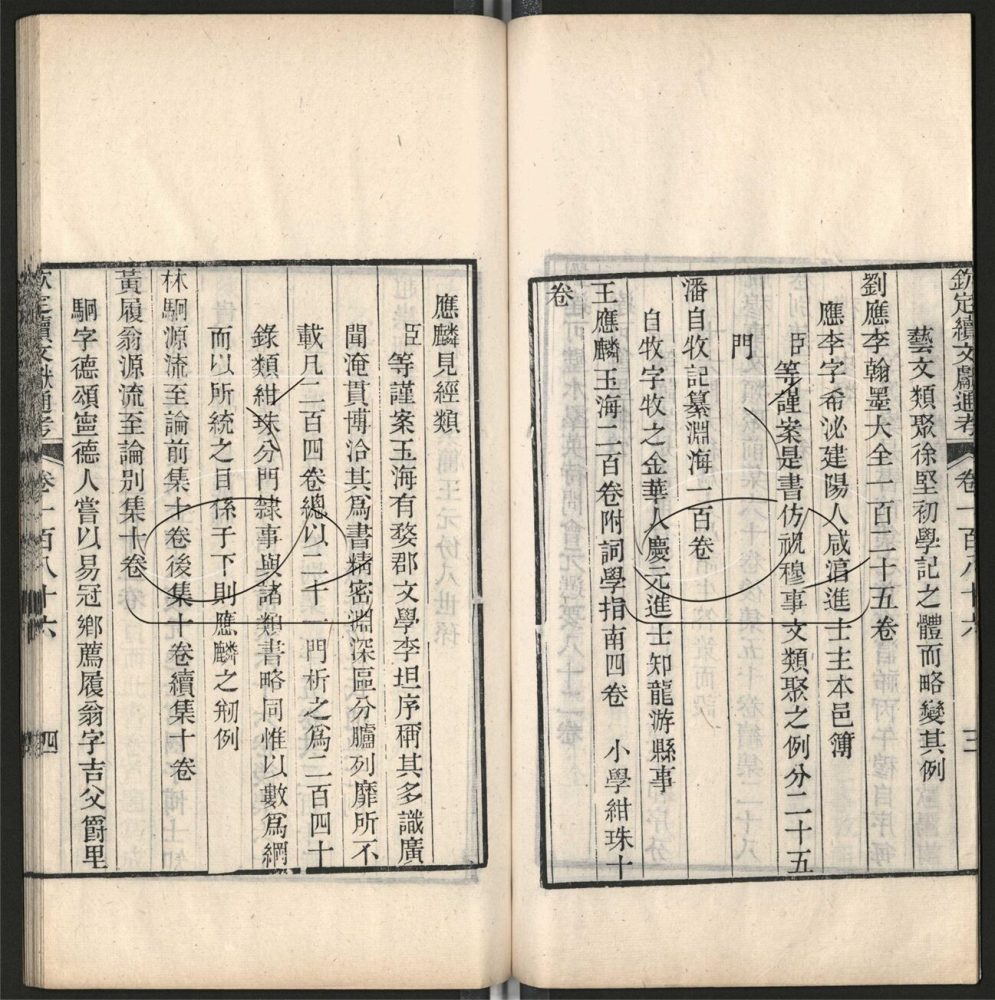 欽定續文獻通考 卷一百八十六 三
藝文類聚徐堅初學記之體而略變其例
劉應李翰墨大全一百二十五卷
應李字希泌建陽人咸淳進士主本邑簿
臣等謹案是書仿祝穆事文類聚之例分二十五
門
潘自牧記纂淵海一百卷
自牧字牧之金華人慶元進士知龍游縣事
王應麟玉海二百卷附詞學指南四卷 小學紺珠十
卷
應麟見經類
臣等謹案玉海有婺郡文學李坦序稱其多識廣
聞淹貫博洽其為書精密淵深區分臚列靡所不
載凡二百四卷總以二十一門析之為二百四十
錄類紺珠分門隸事與諸類書略同惟以數為綱
而以所統之目係于下則應麟之剏例
林駉源流至論前集十卷後集十卷續集十卷
黃履翁源流至論別集十卷
駉字德頌寧德人嘗以易冠鄉薦履翁字吉父爵里
欽定續文獻通考 卷一百八十六 四